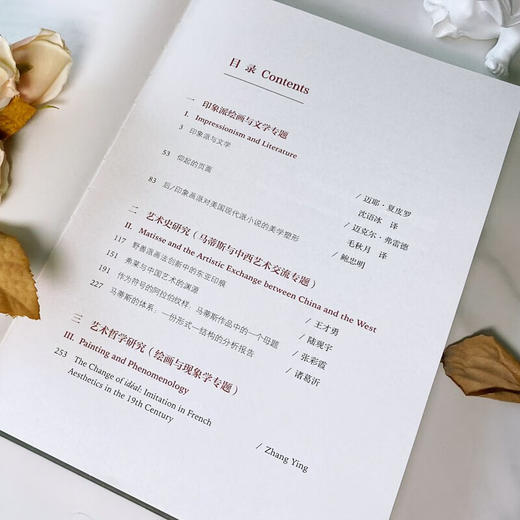 目 录 Contents
一 印象派绘画与文学专题
I. Impressionism and Literature
3 印象派与文学
/ 迈耶·夏皮罗
沈语冰 译
53 仰起的页面
/ 迈克尔·弗雷德
毛秋月 译
83 后/印象画派对美国现代派小说的美学塑形
/ 鲍忠明
二 艺术史研究（马蒂斯与中西艺术交流专题）
II. Matisse and the Artistic Exchange between China and the West
117 野兽派画法创新中的东亚印痕
/ 王才勇
151 希莱与中国艺术的渊源
/ 陆觊宇
191 作为符号的阿拉伯纹样：马蒂斯作品中的一个母题
/ 张彩霞
227 马蒂斯的体系：一份形式—结构的分析报告
/ 诸葛沂
三 艺术哲学研究（绘画与现象学专题）
III. Painting and Phenomenology
253 The Change of ideal: Imitation in French
Aesthetics in the 19th Century
/ Zhang Ying